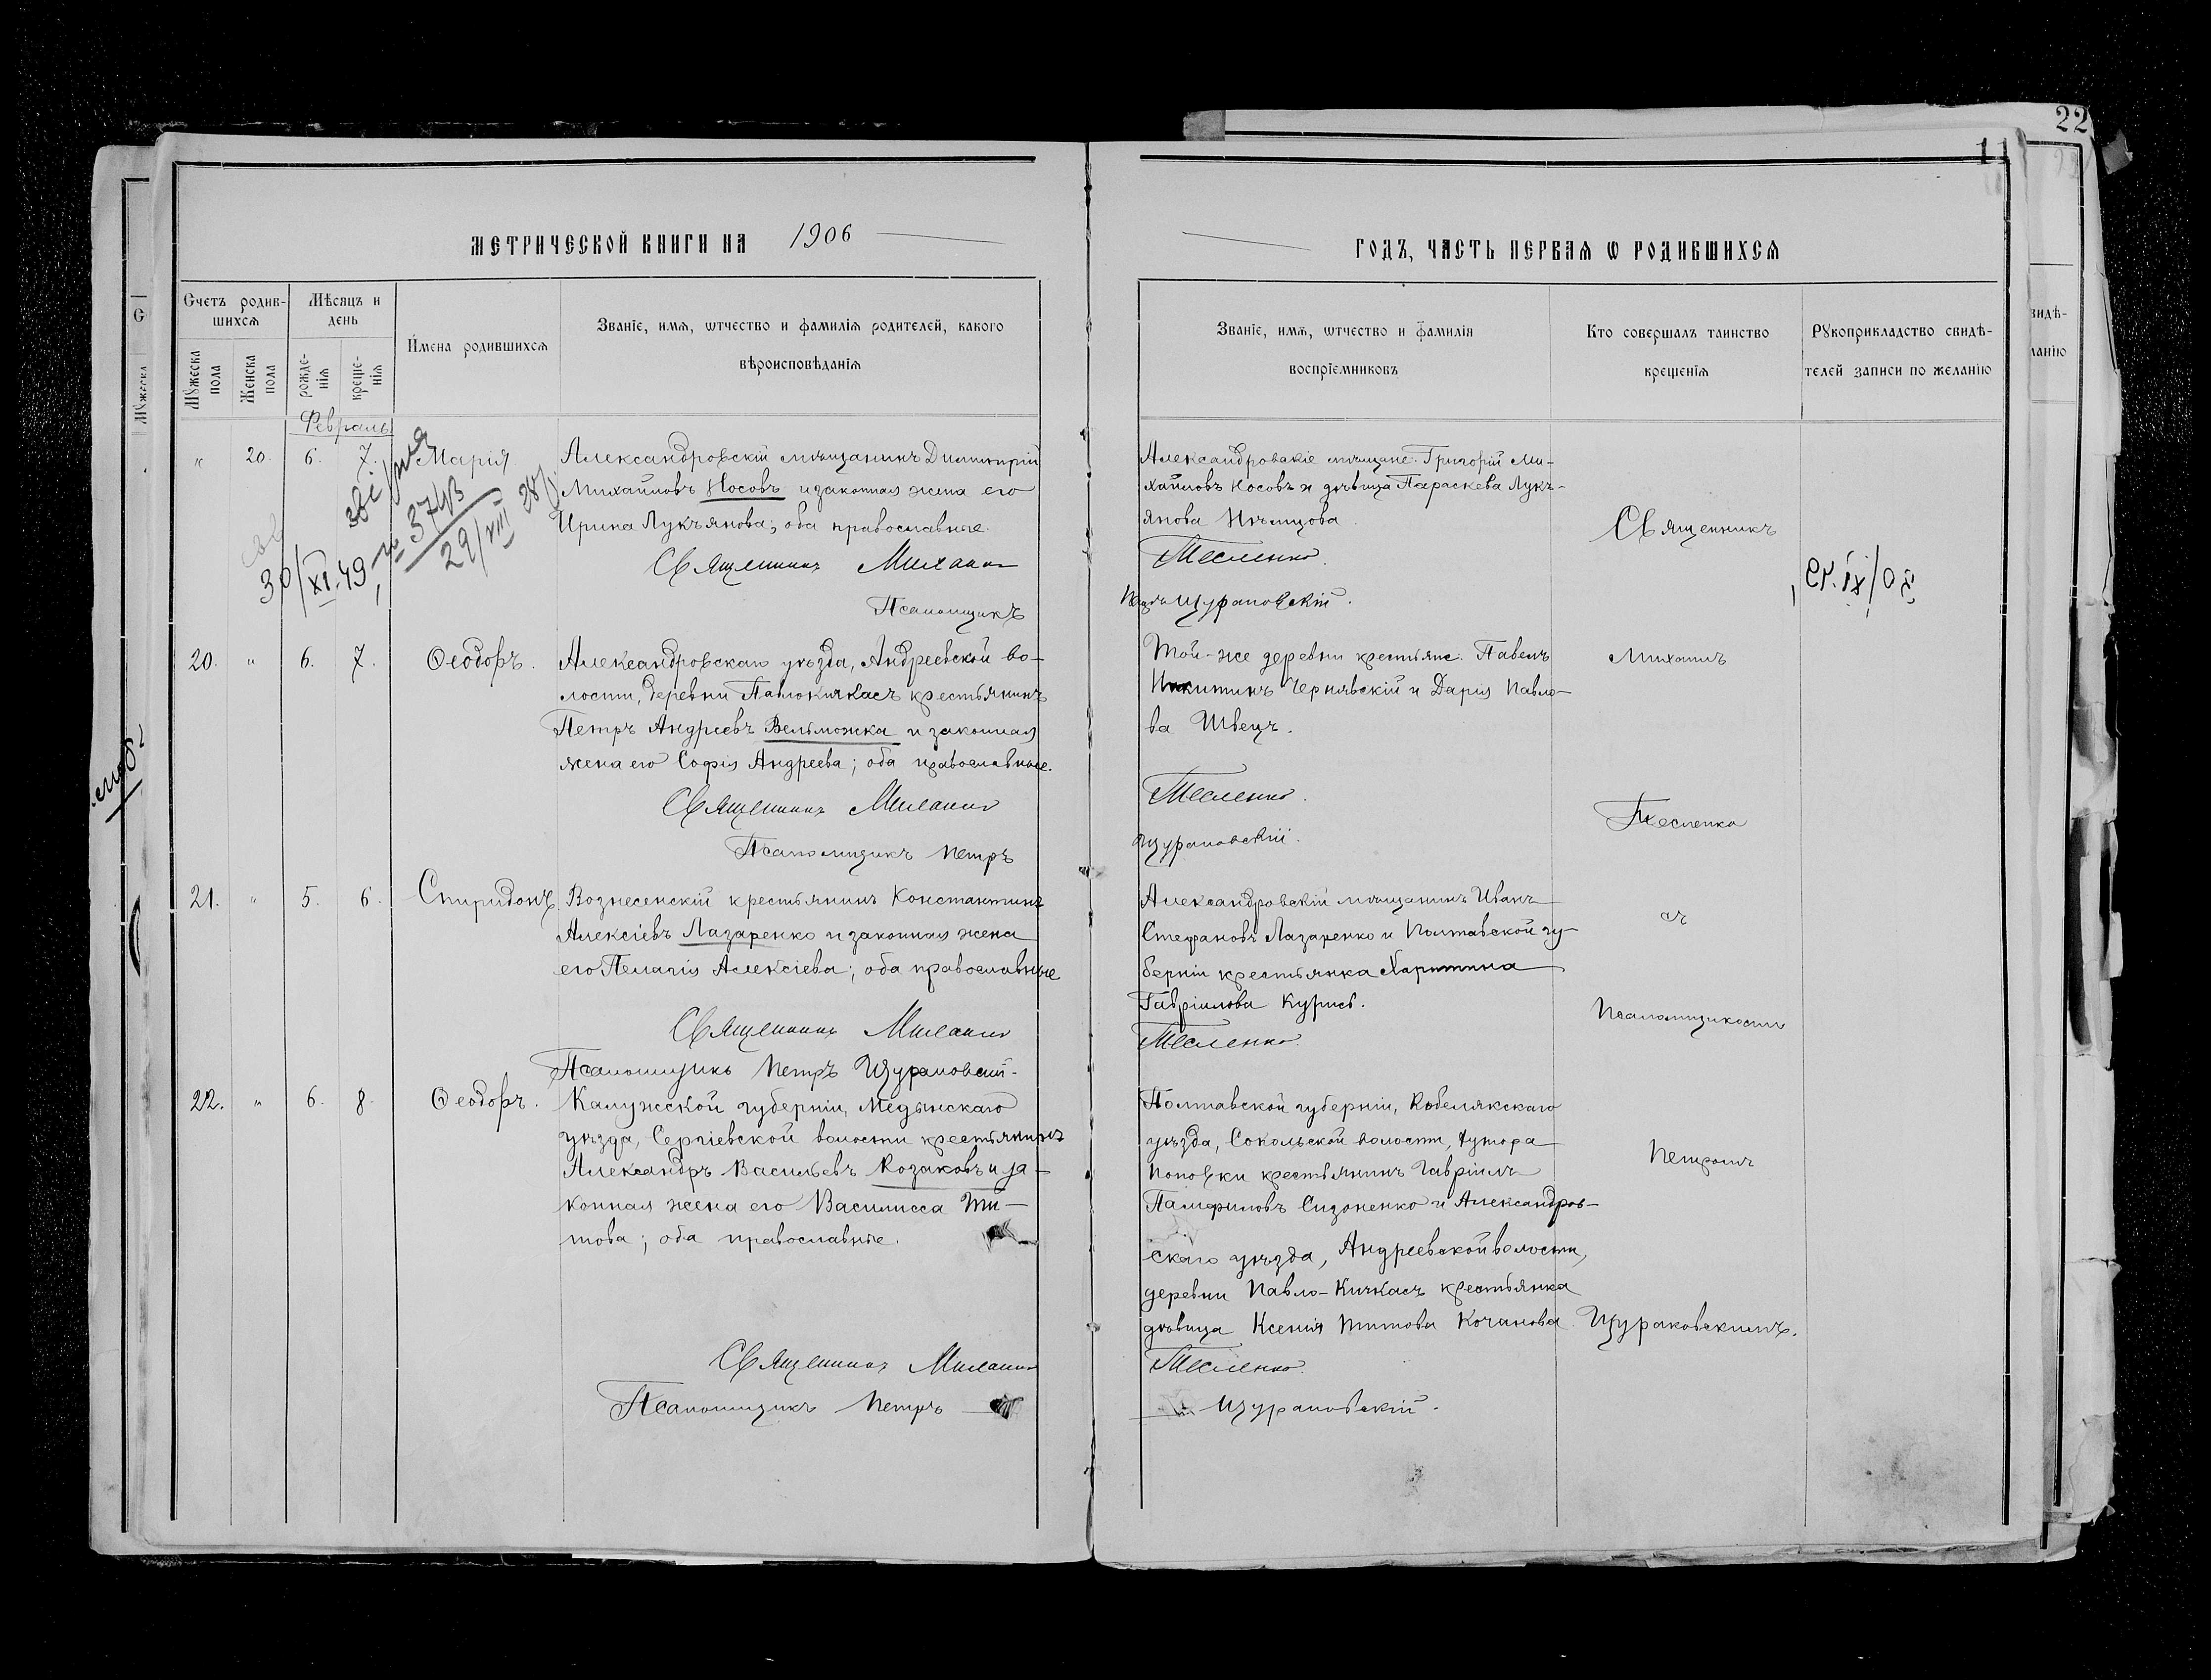 22
11
МЕТРИЧЕСКОЙ КНИГИ НА 1906
ГОДЪ, ЧАСТЬ ПЕРВАѦ Ѡ РОДИВШИХСѦ
Счетъ родив-
шихсѧ
Мѣсяцъ и
день
Мужеска
пола
Женска
пола
рожде-
нїѧ
креще-
нїѧ
Имена родившихсѧ
Званїе, имѧ, ѡтчество и фамилїѧ родителей, какого
вѣроисповѣданїѧ
Званїе, имѧ, ѡтчество и фамилїѧ
воспрїемниковъ
Кто совершалъ таинство
крещенїѧ
Рукоприкладство свидѣ-
телей записи по желанїю
Февраль
" 20. 6. 7. Марія
Александровскій мѣщанинъ Димитрій
Михаиловъ Носовъ и законная жена его
Ирина Лукъянова; оба православные.
Священникъ Михаил
Псаломщикъ
Александровскіе мѣщане: Григорій Ми-
хаиловъ Носовъ и дѣвица Параскева Лукъ-
янова Нѣмцова
Тесленко.
Щураковскій.
30/XI.49
29/VIII
20. " 6. 7. Ѳеодоръ.
Александровскаго уѣзда, Андреевской во-
лости, деревни Павлокичкасъ крестьянинъ
Петръ Андреевъ Вельможка и законная
жена его Софія Андреева; оба православные.
Священникъ Михаил
Псаломщикъ Петръ
Той-же деревни крестьяне: Павелъ
Никитинъ Чернявскій и Дарія Павло-
ва Швецъ.
Тесленко.
Щураковскій.
21. " 5. 6. Спиридонъ
Вознесенскій крестьянинъ Константинъ
Алексіевъ Лазаренко и законная жена
его Пелагія Алексіева; оба православные
Священникъ Михаил
Псаломщикъ Петръ Щураковскій.
Александровскій мѣщанинъ Иванъ
Стефановъ Лазаренко и Полтавской гу-
берніи крестьянка Харитина
Гавріилова Курись.
Тесленко.
22. " 6. 8. Ѳеодоръ.
Калужской губерніи, Медынскаго
уѣзда, Сергіевской волости крестьянинъ
Александръ Васильевъ Козаковъ и за-
конная жена его Василисса Ти-
това; оба православные.
Священникъ Михаил
Псаломщикъ Петръ
Полтавской губерніи, Кобелякскаго
уѣзда, Сокольской волости, хутора
Поповки крестьянинъ Гавріилъ
Памфиловъ Сизоненко и Александров-
скаго уѣзда, Андреевской волости,
деревни Павло-Кичкасъ крестьянка
дѣвица Ксенія Титова Кочанова.
Тесленко.
Щураковскій.
Священникъ
Михаилъ
Тесленко
съ
Псаломщикомъ
Петромъ
Щураковскимъ.